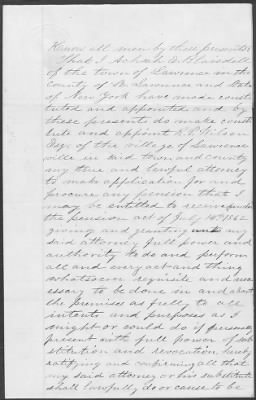 Know all men by these presents
That I Achsah D. Blaisdell
of the town of Lawrence in the
County of St. Lawrence and State
of New York have made consti
tuted and appointed and by
these presents do make consti
tute and appoint Wilson
Esq. of the village of Lawrence
ville in said town and county
my true and lawful attorney
to make application for and
procure any pension that I
may be entitled to receive under
the pension act of July 14th 1862
giving and granting unto my
said attorney full power and
authority to do and perform
all and every act and thing
whatsoever requisite and nec
essary to be done in and about
the premises as fully to all
intents and purposes as I
might or could do if personally
present with full power of sub
stitution and revocation hereby
ratifying and confirming all that
my said attorney or his substitute
shall lawfully do or cause to be